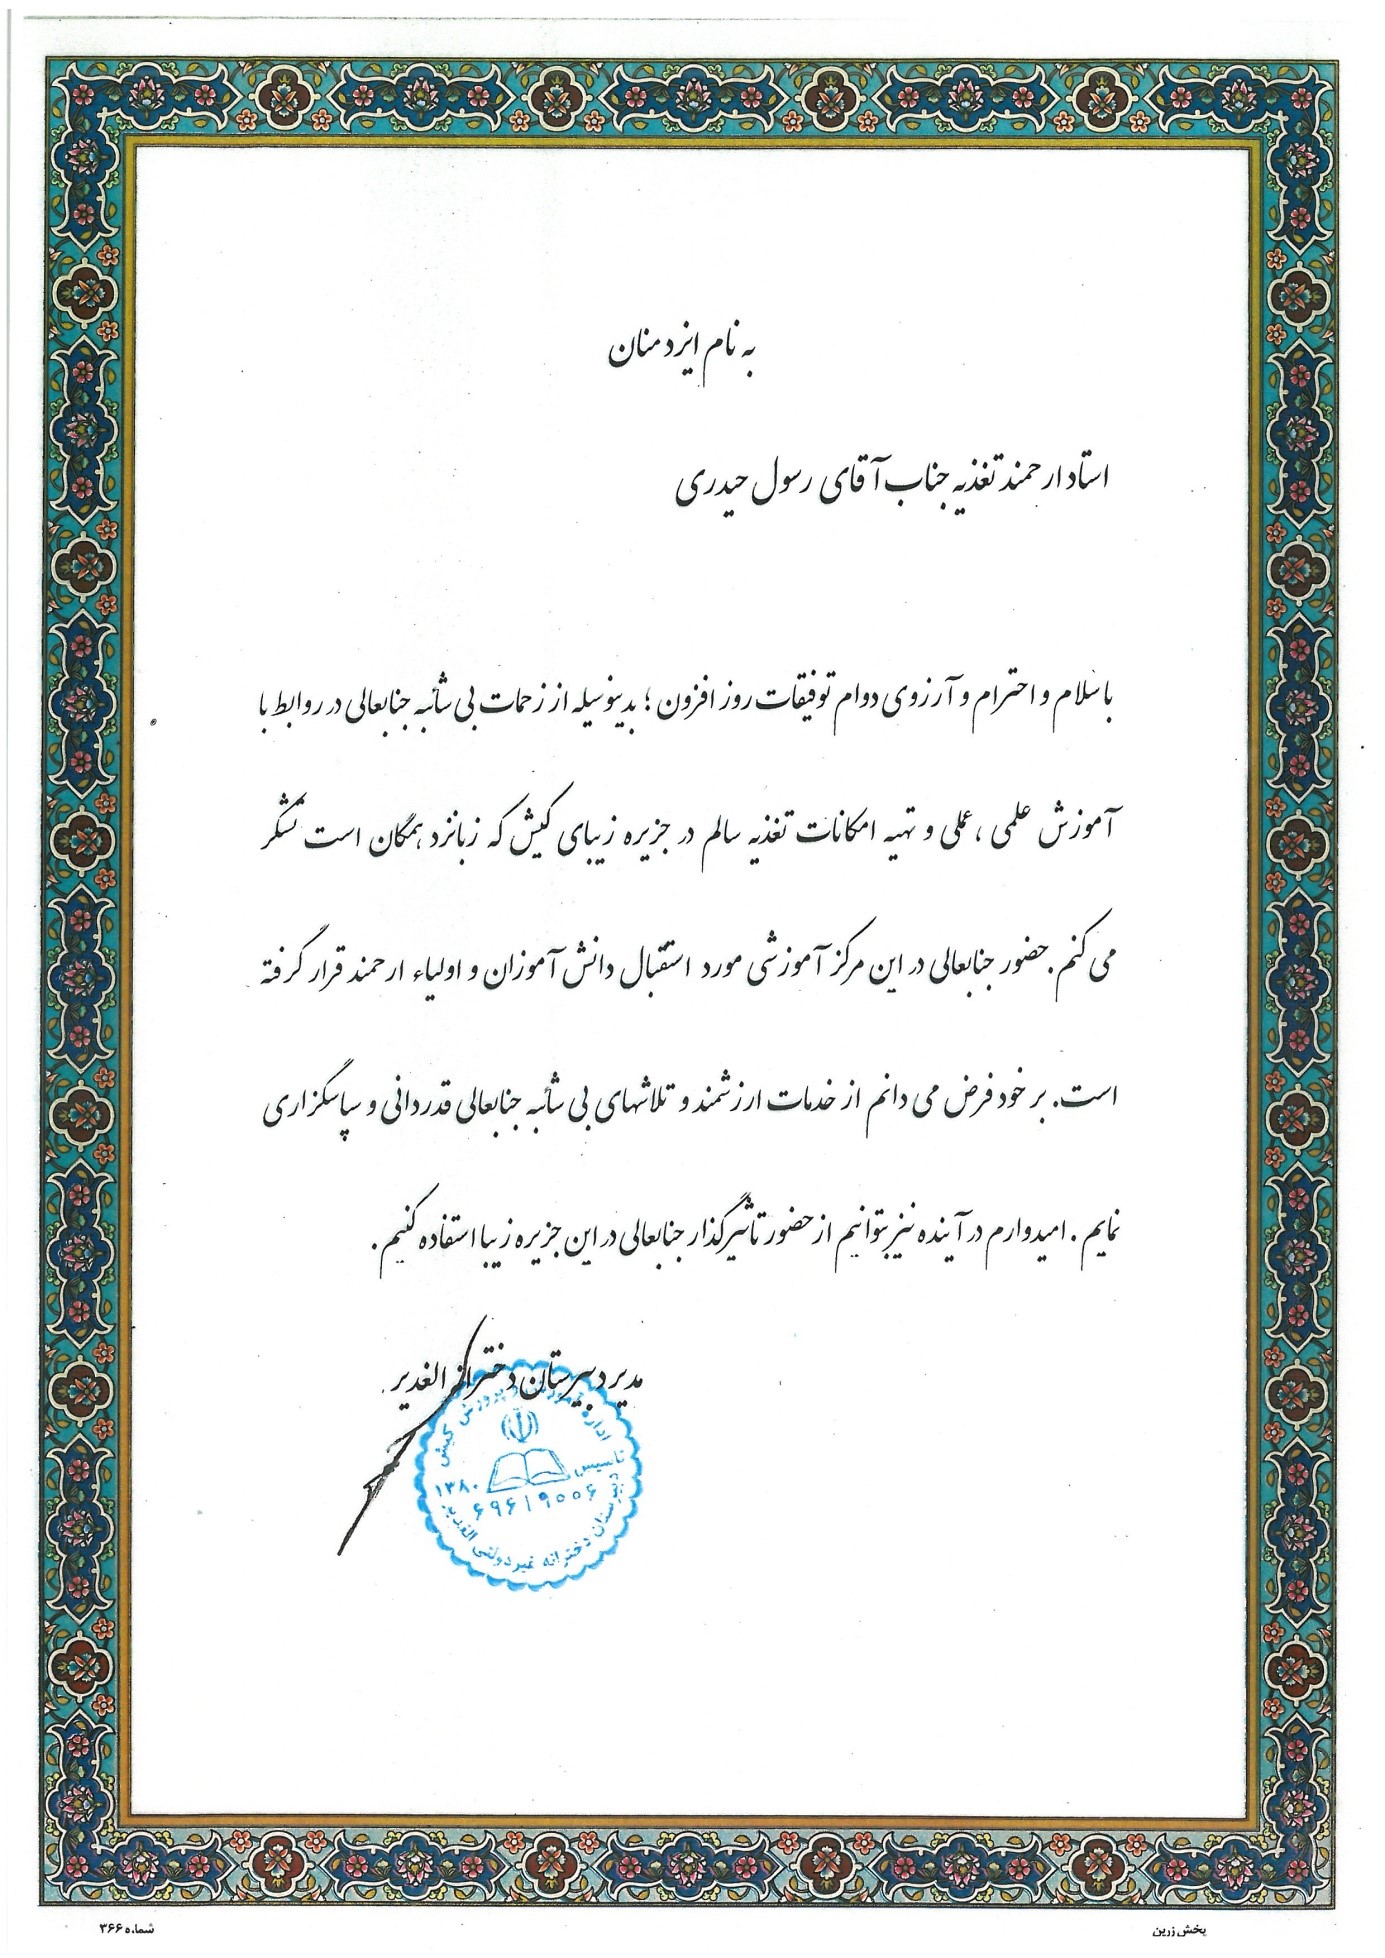 به نام ایزد منان
استاد ارجمند تغذیه جناب آقای رسول حیدری
با سلام و احترام و آرزوی دوام توفیقات روز افزون ؛ بدینوسیله از زحمات بی شائبه جنابعالی در روابط با
آموزش علمی ، عملی و تهیه امکانات تغذیه سالم در جزیره زیبای کیش که زبانزد همگان است تشکر
می کنم . حضور جنابعالی در این مرکز آموزشی مورد استقبال دانش آموزان و اولیاء ارجمند قرار گرفته
است . بر خود فرض می دانم از خدمات ارزشمند و تلاشهای بی شائبه جنابعالی قدردانی و سپاسگزاری
نمایم . امیدوارم در آینده نیز بتوانیم از حضور تاثیرگذار جنابعالی در این جزیره زیبا استفاده کنیم .
مدیر دبیرستان دخترانه الغدیر
اداره آموزش و پرورش کیش
تاسیس ۱۳۸۰
۶۹۶۱۹۰۰۶
دبیرستان دخترانه غیردولتی الغدیر
پخش زرین
شماره ۳۶۶